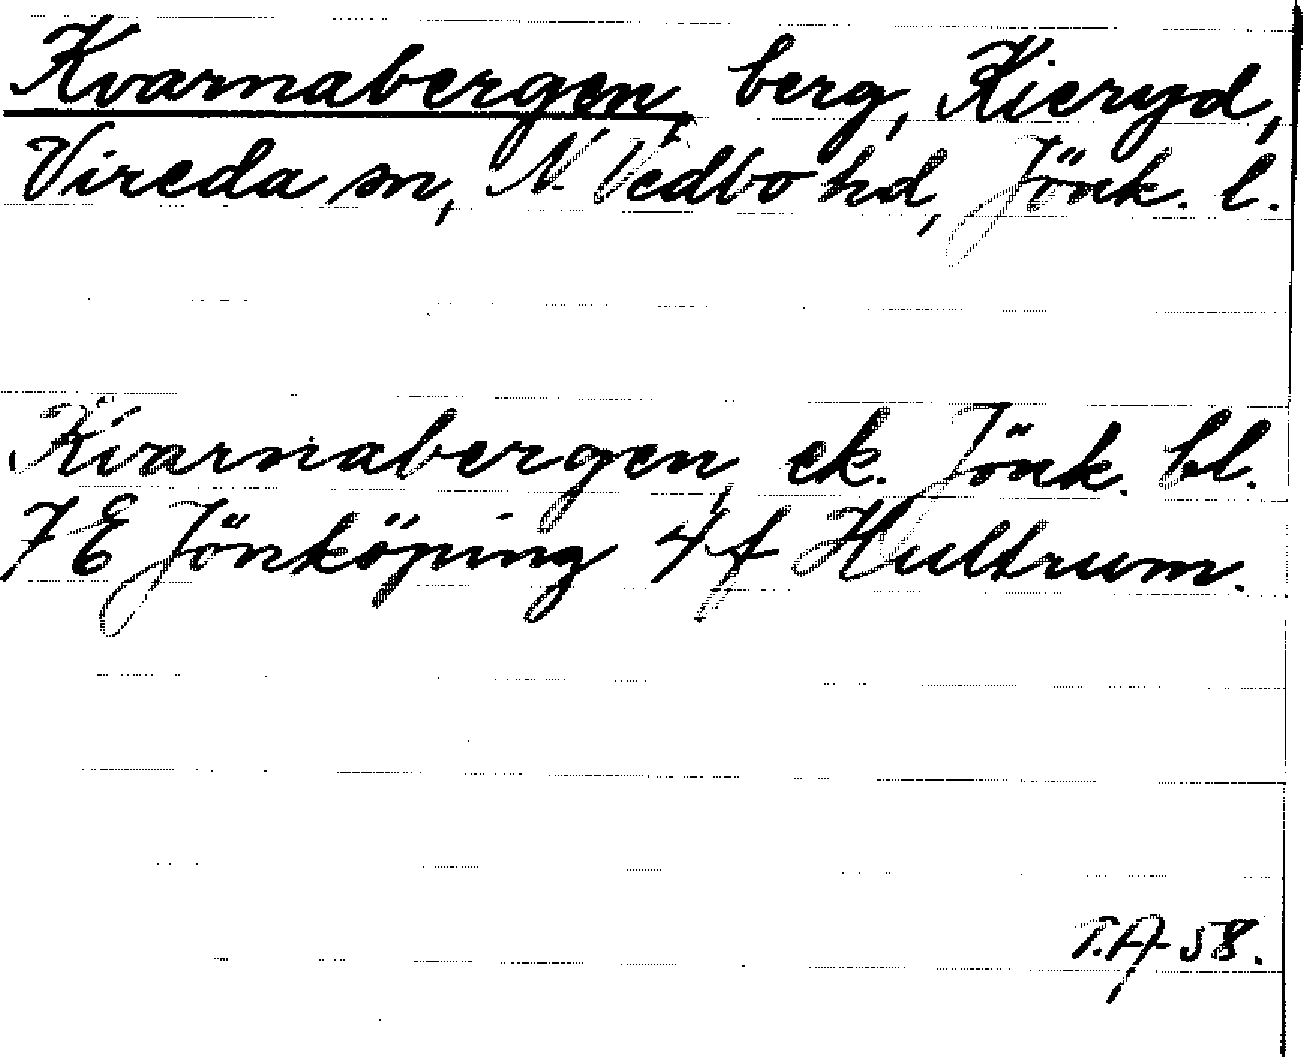 Kvarnabergen, berg, Kieryd,
Vireda sn, N. Vedbo hd, Jönk. l.
Kvarnabergen, ek. Jönk. bl.
7 E Jönköping 4 f Hultrum.
T.A. 58.